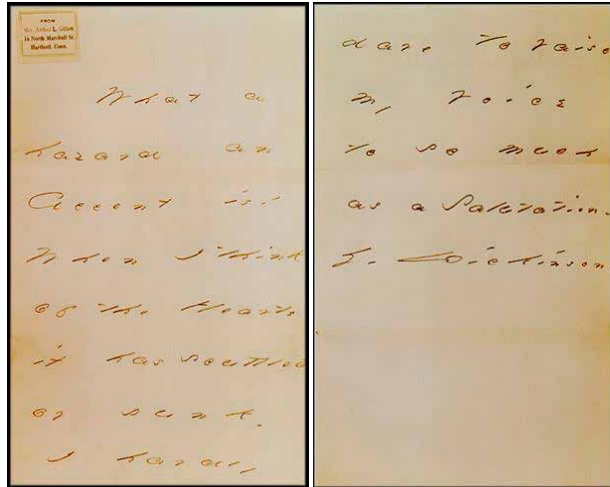 FROM
Mrs. Arthur L. Gillett
14 North Marshall St.
Hartford, Conn.
What a
hazard an
Accent is!
When I think
of the Hearts
it has scuttled
or sunk,
I hardly
dare to raise
my voice
to so much
as a Salutation.
E. Dickinson